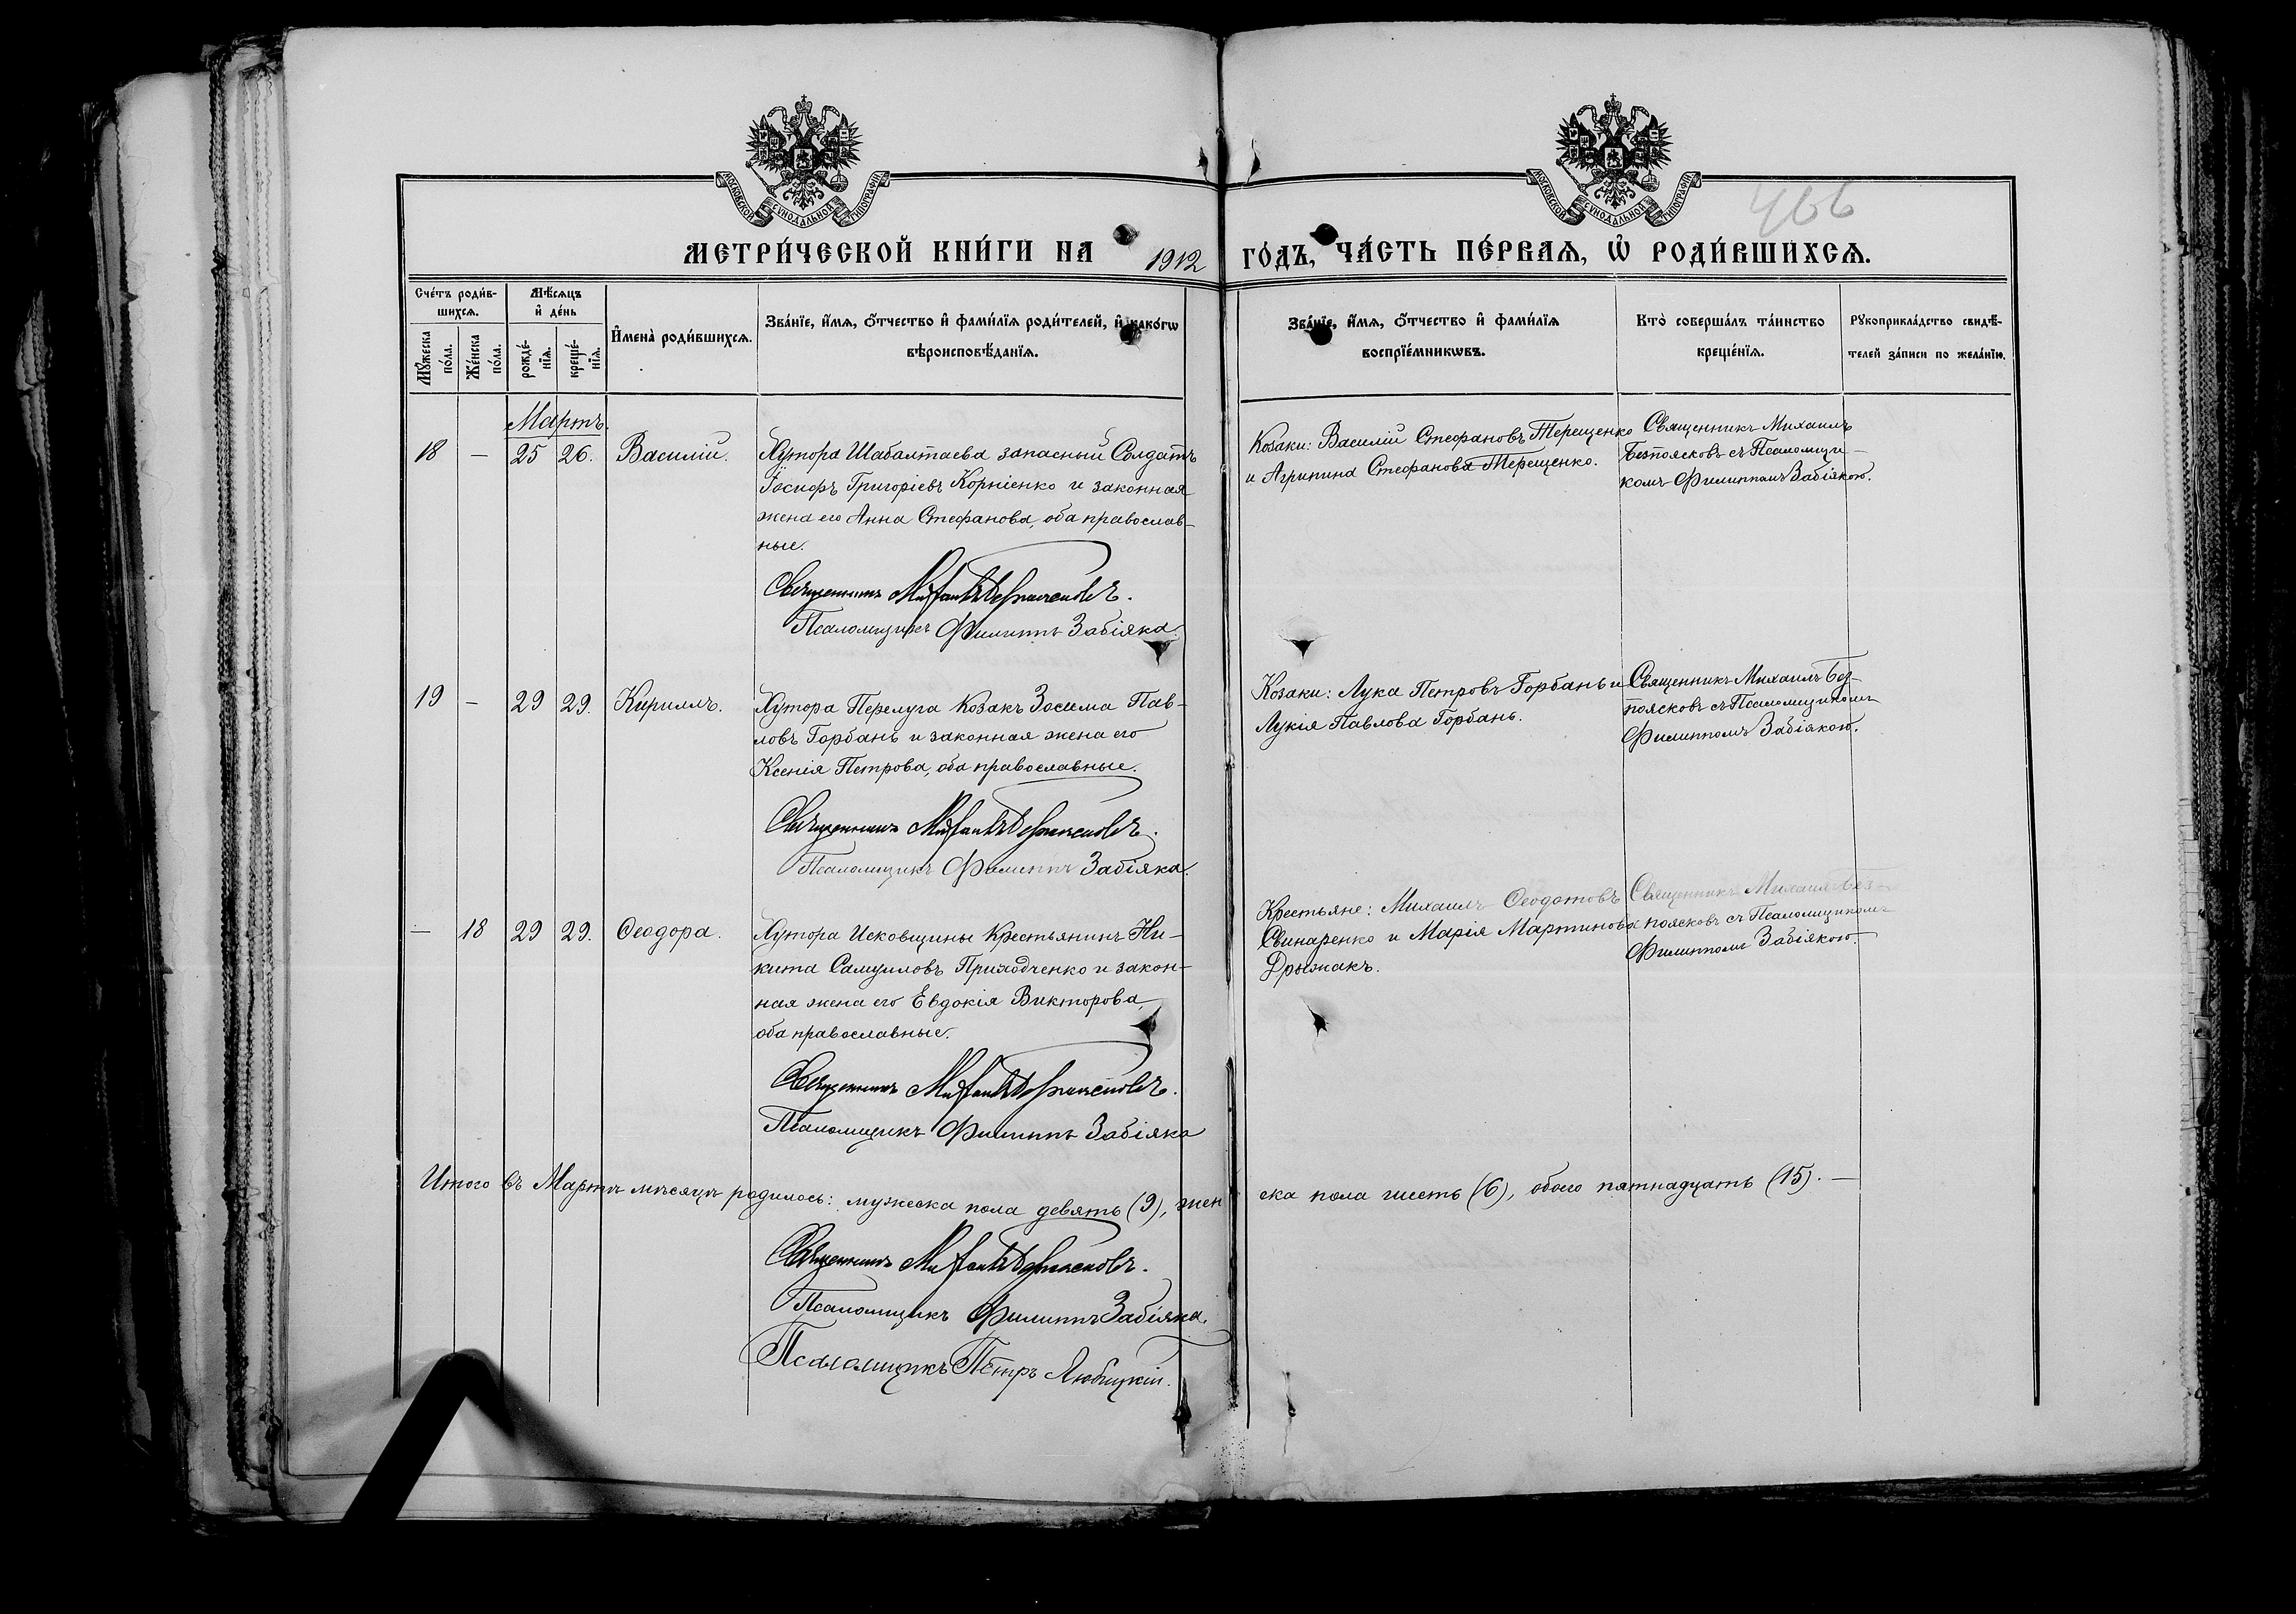 МОСКОВСКОЙ СѴНОДАЛЬНОЙ ТИПОГРАФІИ
МОСКОВСКОЙ СѴНОДАЛЬНОЙ ТИПОГРАФІИ
466
МЕТРИ́ЧЕСКОЙ КНИ́ГИ НА 1912 ГО́ДЪ, ЧА́СТЬ ПЕ́РВАѦ, Ѡ҆ РОДИ́ВШИХСѦ.
Сче́тъ роди́в-
шихсѧ.
Мꙋ́жеска по́ла.
Же́нска по́ла.
Мѣ́сѧцъ
и҆ де́нь
рожде́-
нїѧ.
креще́-
нїѧ.
И҆мена̀ роди́вшихсѧ.
Зва́нїе, и҆́мѧ, ѻ҆́тчество и҆ фами́лїѧ роди́телей, и҆ како́гѡ
вѣроисповѣ́данїѧ.
Зва́нїе, и҆́мѧ, ѻ҆́тчество и҆ фами́лїѧ
воспрїе́мникѡвъ.
Кто̀ соверша́лъ та́инство
креще́нїѧ.
Рꙋкоприкла́дство свидѣ́-
телей за́писи по жела́нїю.
Мартъ.
18 — 25 26. Василій.
Хутора Шабалтаева запасный Солдатъ
Іосифъ Григоріевъ Корніенко и законная
жена его Анна Стефанова, оба православ-
ные.
Священникъ Михаилъ Безпоясковъ.
Псаломщикъ Филиппъ Забіяка.
Козаки: Василій Стефановъ Терещенко
и Агрипина Стефанова Терещенко.
Священникъ Михаилъ
Безпоясковъ съ Псаломщи-
комъ Филиппомъ Забіякою.
19 — 29 29. Кириллъ.
Хутора Перелуга Козакъ Зосима Пав-
ловъ Горбань и законная жена его
Ксенія Петрова, оба православные.
Священникъ Михаилъ Безпоясковъ.
Псаломщикъ Филиппъ Забіяка.
Козаки: Лука Петровъ Горбань и
Лукія Павлова Горбань.
Священникъ Михаилъ Без-
поясковъ съ Псаломщикомъ
Филиппомъ Забіякою.
— 18 29 29. Ѳеодора.
Хутора Исковщины Крестьянинъ Ни-
кита Самуиловъ Приходченко и закон-
ная жена его Евдокія Викторова,
оба православные.
Священникъ Михаилъ Безпоясковъ.
Псаломщикъ Филиппъ Забіяка
Крестьяне: Михаилъ Ѳеодотовъ
Свинаренко и Марія Мартинова
Дрыжакъ.
Священникъ Михаилъ Без-
поясковъ съ Псаломщикомъ
Филиппомъ Забіякою.
Итого въ Мартѣ мѣсяцѣ родилось: мужеска пола девять (9), жен ска пола шесть (6), обоего пятнадцать (15). —
Священникъ Михаилъ Безпоясковъ.
Псаломщикъ Филиппъ Забіяка.
Псаломщикъ Петръ Любицкій.